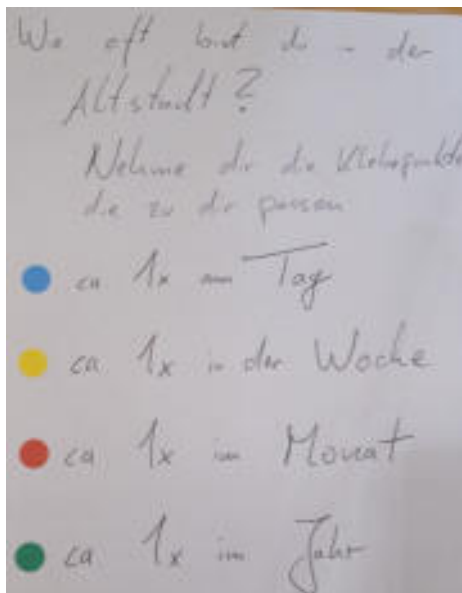 Wie oft bist du in der
Altstadt?
Nehme dir die Klebepunkte
die zu dir passen
ca 1x am Tag
ca 1x in der Woche
ca 1x im Monat
ca 1x im Jahr